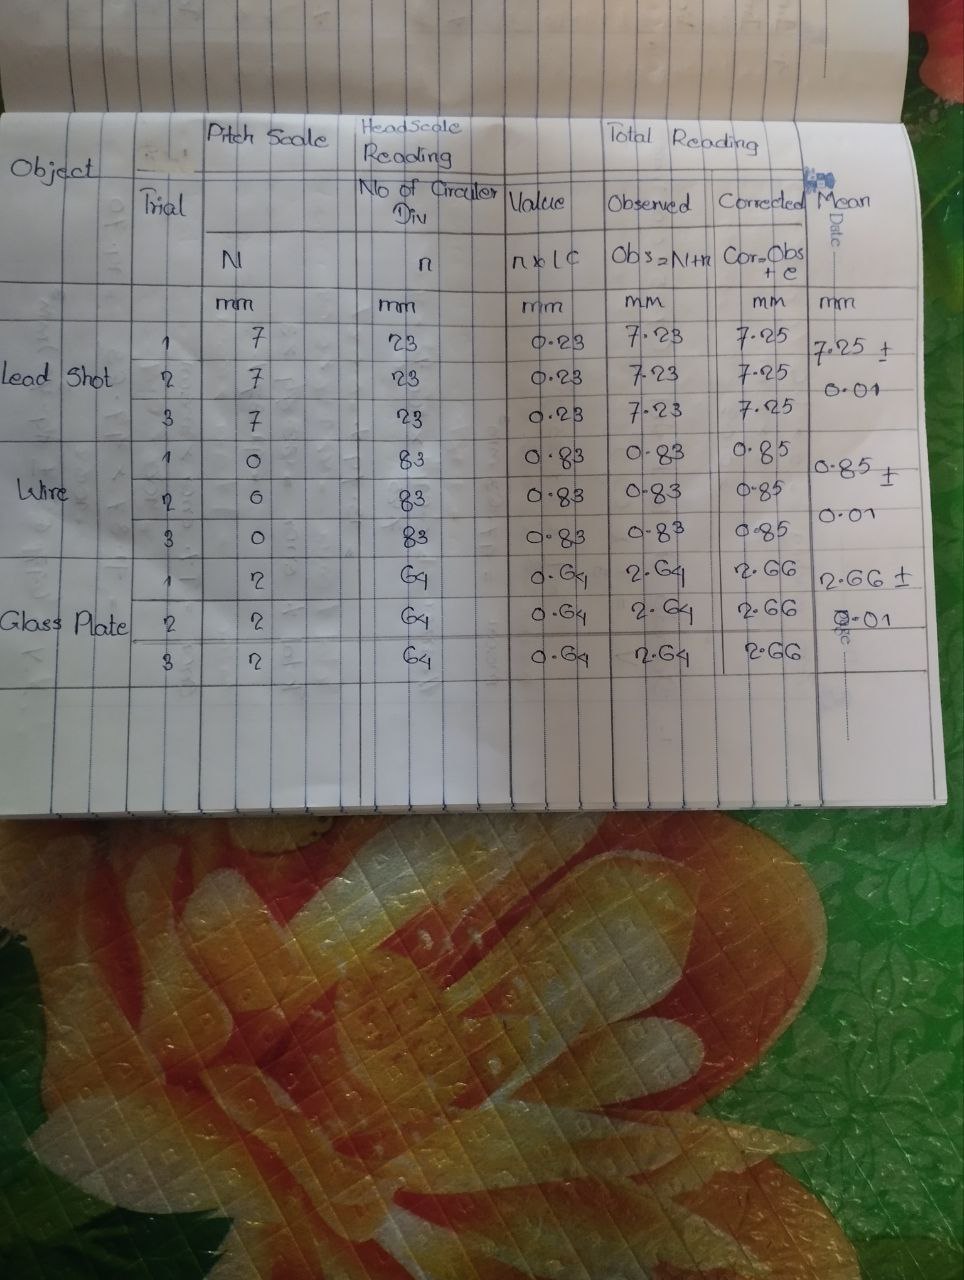 Object Trial Pitch Scale HeadScale Reading Total Reading
No of Circuler Div Value Observed Corrected Mean
N n n x LC Obs = N+n Cor=Obs + e
mm mm mm mm mm mm
Lead Shot 1 7 23 0.23 7.23 7.25 7.25 ± 0.01
2 7 23 0.23 7.23 7.25
3 7 23 0.23 7.23 7.25
Wire 1 0 83 0.83 0.83 0.85 0.85 ± 0.01
2 0 83 0.83 0.83 0.85
3 0 83 0.83 0.83 0.85
Glass Plate 1 2 64 0.64 2.64 2.66 2.66 ± 0.01
2 2 64 0.64 2.64 2.66
3 2 64 0.64 2.64 2.66
Date